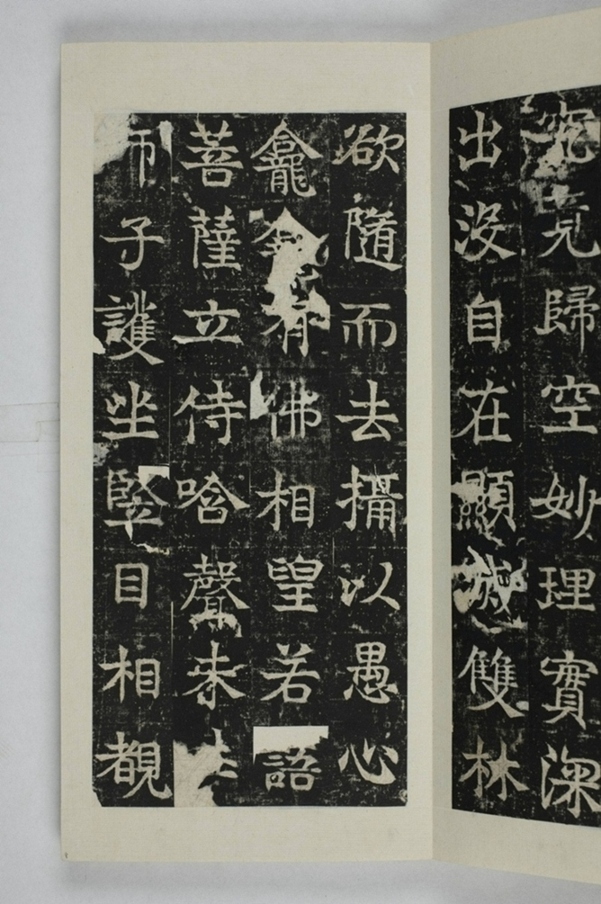 究竟歸空妙理實深
出没自在顯滅雙林
欲隨而去攝以愚心
龕有佛相望若語
菩薩立侍唅聲未
師子護坐竪目相覩